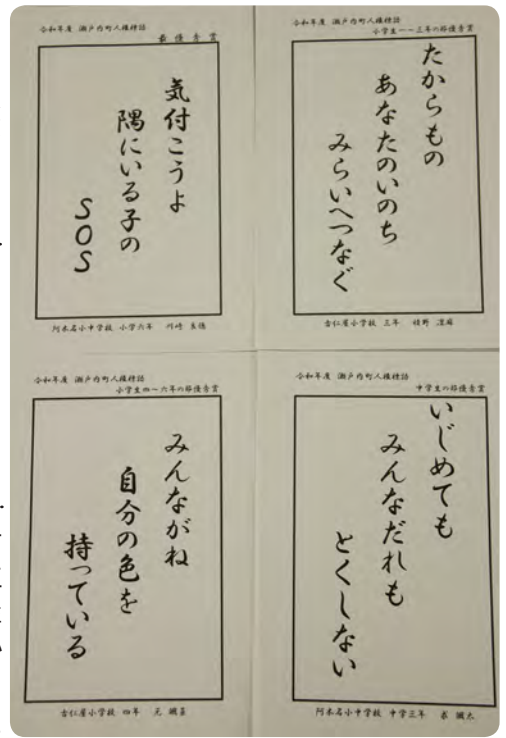 令和年度 瀬戸内町人権標語
小学生一~三年の部優秀賞
たからもの
あなたのいのち
みらいへつなぐ
古仁屋小学校 三年
令和年度 瀬戸内町人権標語
最優秀賞
気付こうよ
隅にいる子の
SOS
阿木名小中学校 小学六年 川崎
令和年度 瀬戸内町人権標語
中学生の部優秀賞
いじめても
みんなだれも
とくしない
阿木名小中学校 中学三年
令和年度 瀬戸内町人権標語
小学生四~六年の部優秀賞
みんながね
自分の色を
持っている
古仁屋小学校 四年 元